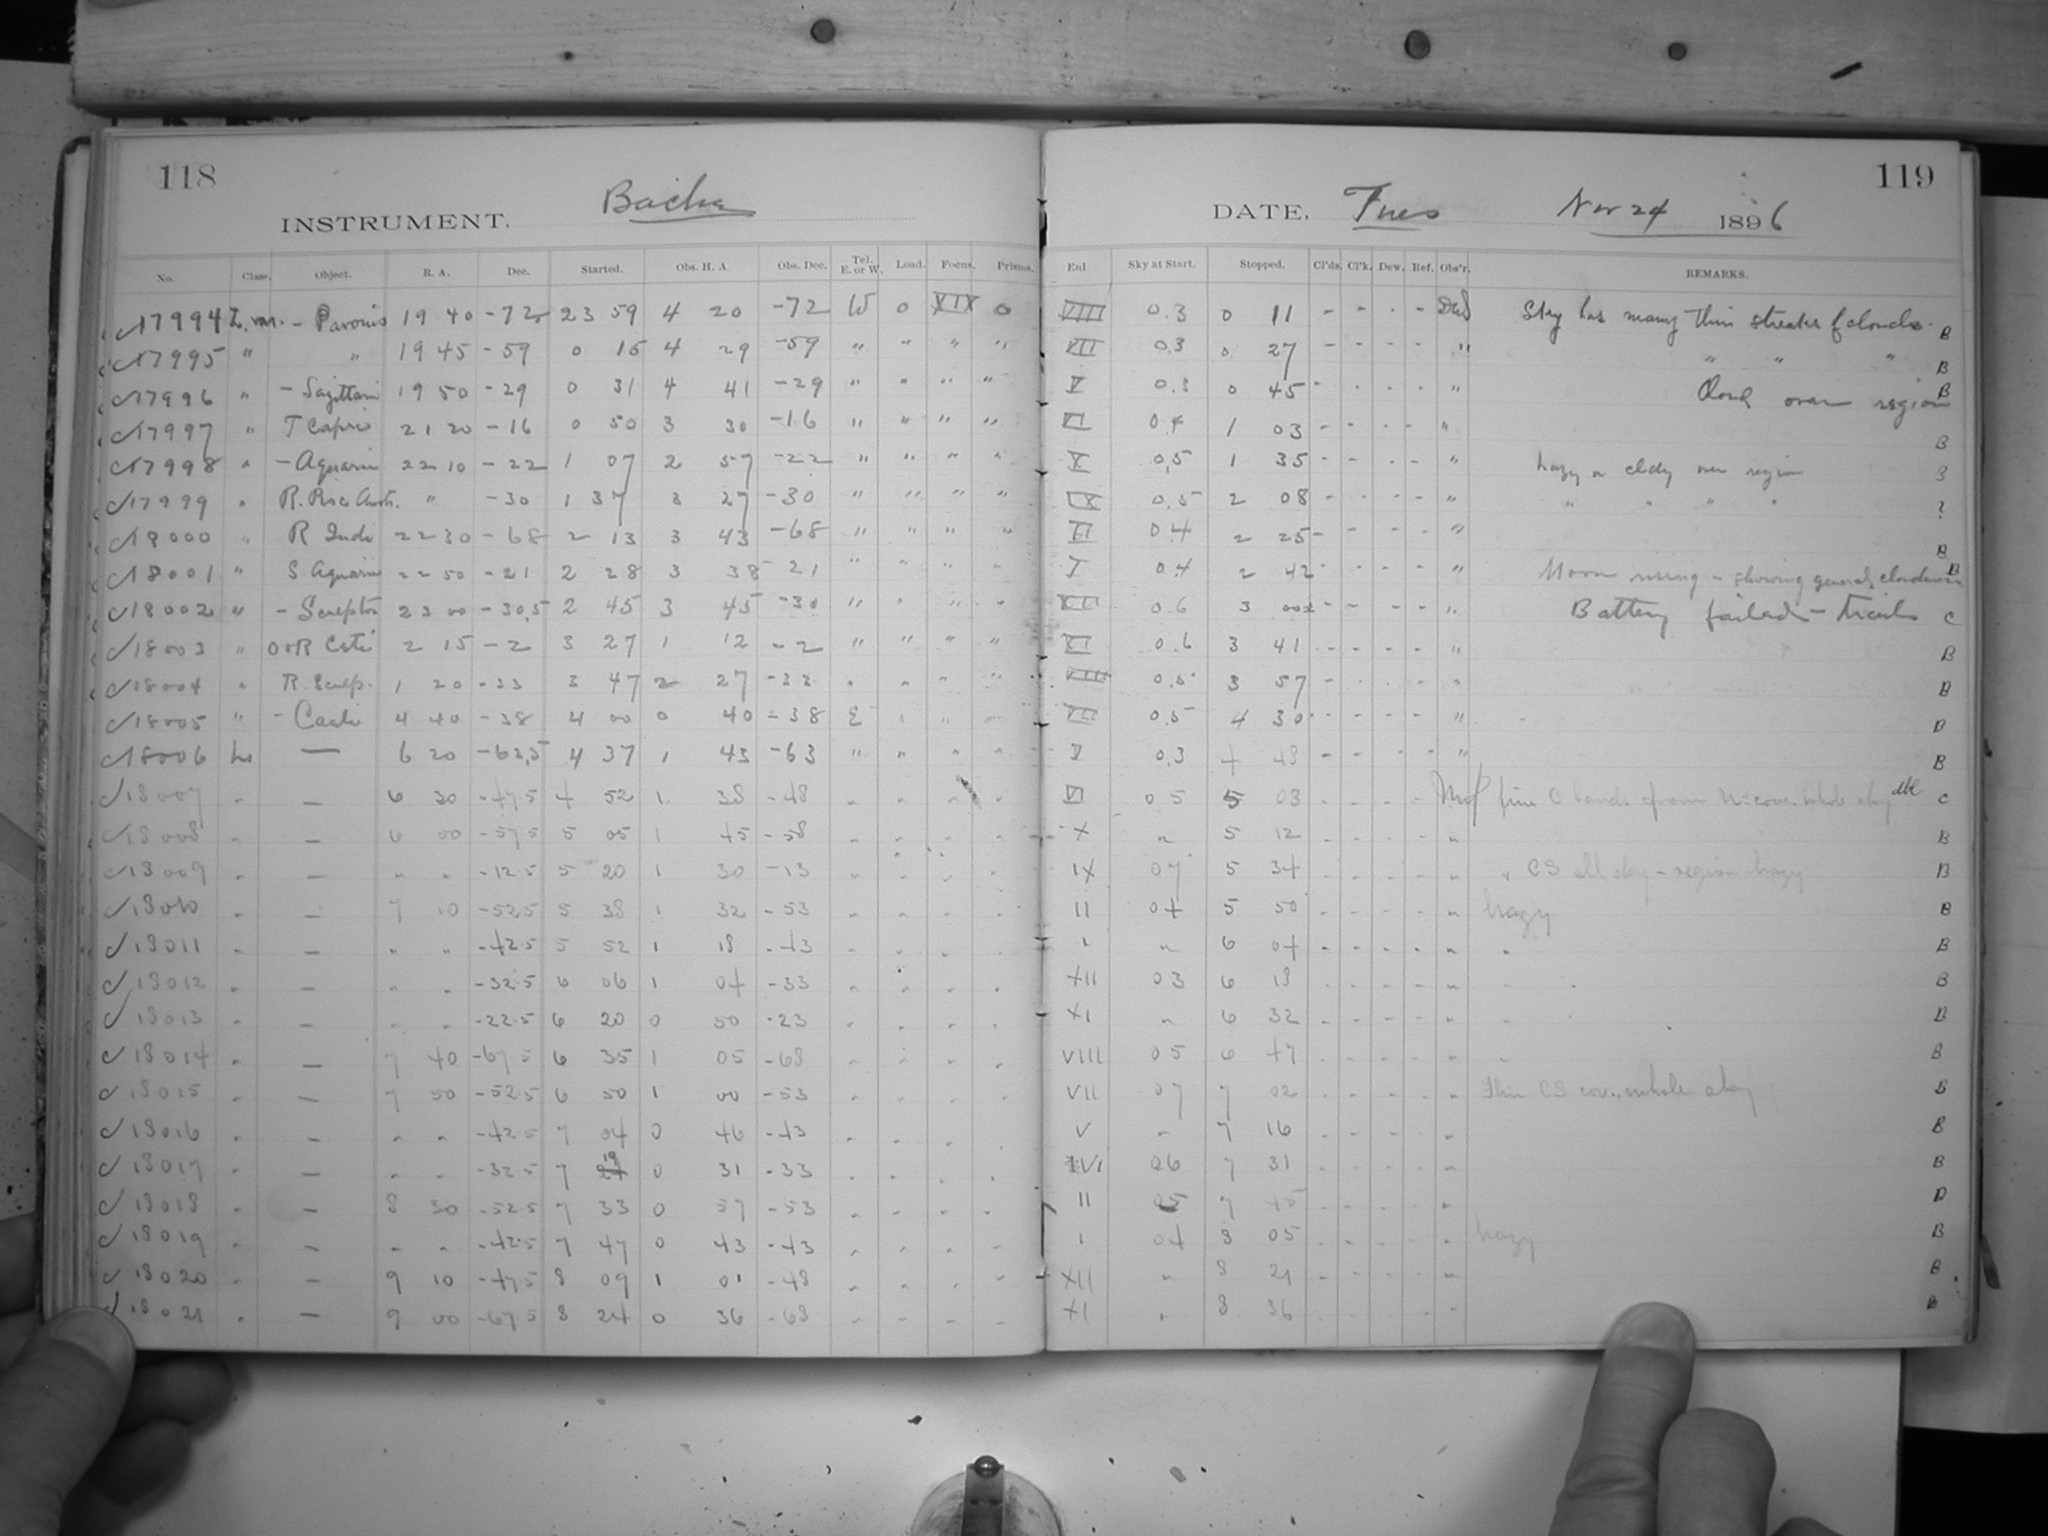 118
INSTRUMENT. Bache
No. Class. Object. R. A. Dec. Started. Obs. H. A. Obs. Dec. Tel. E. or W. Load. Focus. Prisms.
17994 L. var. - Pavonis 19 40 -72 23 59 4 20 -72 W 0 XIX 0
17995 " " 19 45 -59 0 15 4 29 -59 " " " "
17996 " - Sagittarii 19 50 -29 0 31 4 41 -29 " " " "
17997 " T Capric 21 20 -16 0 50 3 30 -16 " " " "
17998 " - Aquarii 22 10 -22 1 07 2 57 -22 " " " "
17999 " R. Pisc Austr. " -30 1 37 3 27 -30 " " " "
18000 " R Indi 22 30 -68 2 13 3 43 -68 " " " "
18001 " S Aquarii 22 50 -21 2 28 3 38 -21 " " " "
18002 " - Sculptor 23 00 -30.5 2 45 3 45 -30 " " " "
18003 " o or R Ceti 2 15 -2 3 27 1 12 -2 " " " "
18004 " R. Sculp. 1 20 -33 3 47 2 27 -33 " " " "
18005 " - Caeli 4 40 -38 4 00 0 40 -38 E " " "
18006 — 6 20 -62.5 4 37 1 43 -63 " " " "
18007 " — 6 30 -47.5 4 52 1 38 -48 " " " "
18008 " — 6 50 -57.5 5 05 1 45 -58 " " " "
18009 " — " " -12.5 5 20 1 30 -13 " " " "
18010 " — 7 10 -52.5 5 38 1 32 -53 " " " "
18011 " — " " -42.5 5 52 1 18 -43 " " " "
18012 " — " " -32.5 6 06 1 04 -33 " " " "
18013 " — " " -22.5 6 20 0 50 -23 " " " "
18014 " — 7 40 -67.5 6 35 1 05 -68 " " " "
18015 " — 7 50 -52.5 6 50 1 00 -53 " " " "
18016 " — " " -42.5 7 04 0 46 -43 " " " "
18017 " — " " -32.5 7 19 0 31 -33 " " " "
18018 " — 8 30 -52.5 7 33 0 57 -53 " " " "
18019 " — " " -42.5 7 47 0 43 -43 " " " "
18020 " — 9 10 -47.5 8 09 1 01 -48 " " " "
18021 " — 9 00 -67.5 8 24 0 36 -68 " " " "
119
DATE, Tues Nov 24 1896
Enl Sky at Start. Stopped. Cl'ds. Cl'k. Dew. Ref. Obs'r. REMARKS.
VIII 0.3 0 11 - - - - Sky has many thin streaks of clouds. B
VII 0.3 0 27 - - - - " " " " B
V 0.3 0 45 - - - - " Cloud over region B
VI 0.4 1 03 - - - - " B
X 0.5 1 35 - - - - " hazy or cloudy over region B
IX 0.5 2 08 - - - - " " " " " ?
II 0.4 2 25 - - - - " B
I 0.4 2 42 - - - - " Moon rising - showing general cloudiness B
XII 0.6 3 00 - - - - " Battery failed - trails C
XI 0.6 3 41 - - - - " B
VIII 0.5 3 57 - - - - " B
VII 0.5 4 30 - - - - " B
V 0.3 4 48 - - - - " B
VI 0 5 5 03 - - - - fine C bands from N = cover whole sky C
X " 5 12 - - - - " B
IX 07 5 34 - - - - " " CS all sky - region hazy B
II 04 5 50 - - - - " hazy B
I " 6 04 - - - - " " B
XII 03 6 18 - - - - " B
XI " 6 32 - - - - " B
VIII 05 6 47 - - - - " " B
VII 07 7 02 - - - - " Thin CS cov. whole sky B
V " 7 16 - - - - " B
VI 06 7 31 - - - - " B
II 05 7 45 - - - - " B
I 04 8 05 - - - - " hazy B
XII " 8 21 - - - - " B
XI " 8 36 - - - - " B